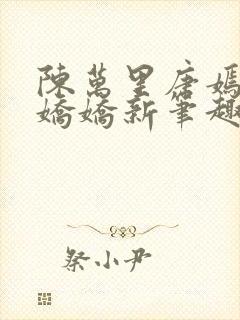 陳萬里唐嫣
嬌嬌新筆趣
祭小尹